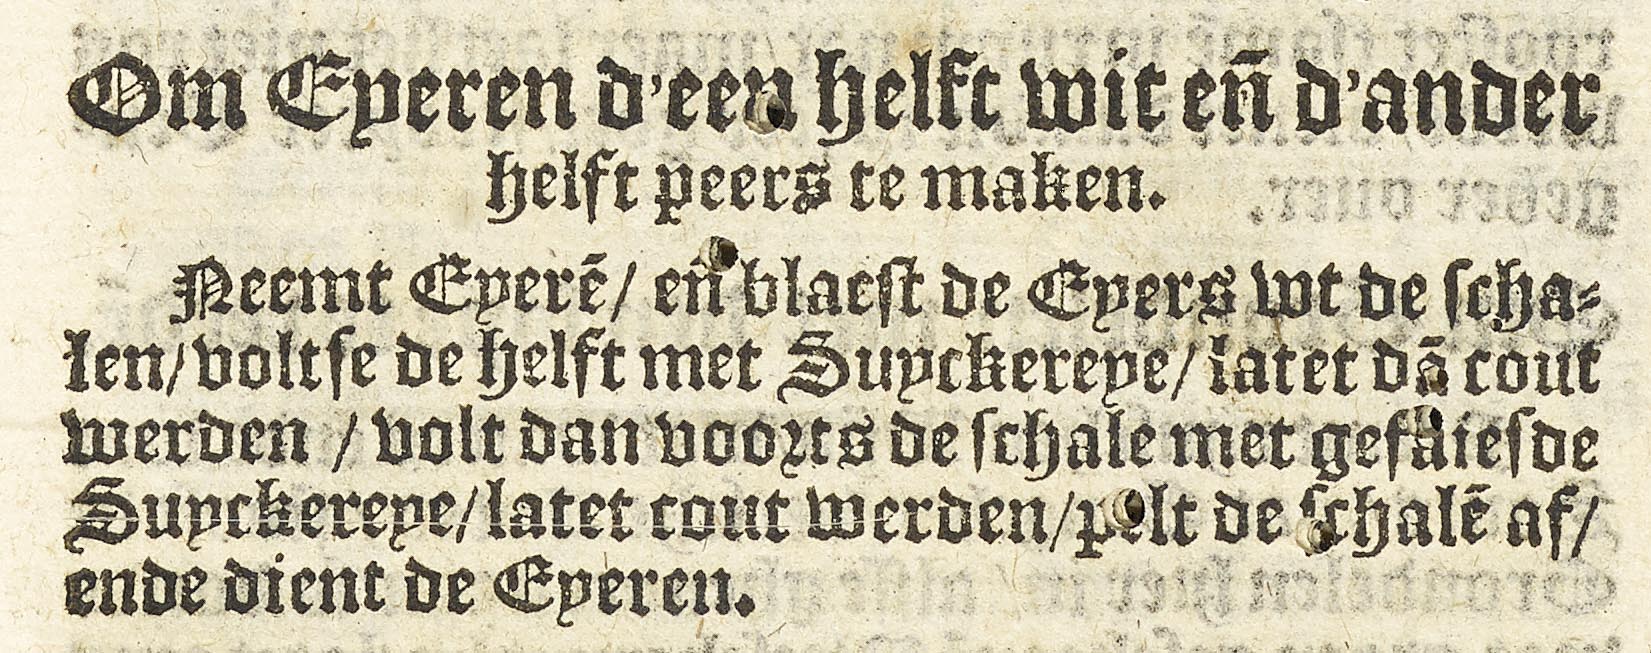 Om Eyeren d'een helft wit eñ d'ander
helft peers te maken.
Neemt Eyerē/ eñ blaest de Eyers wt de scha-
len/voltse de helft met Suyckereye/latet dā cout
werden / volt dan voorts de schale met gefaiesde
Suyckereye/latet cout werden/pelt de schalē af/
ende dient de Eyeren.